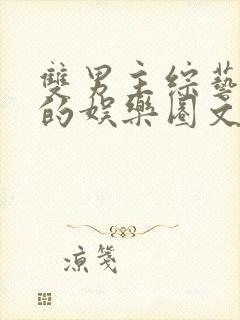 雙男主綜藝
的娛樂圈文
涼箋